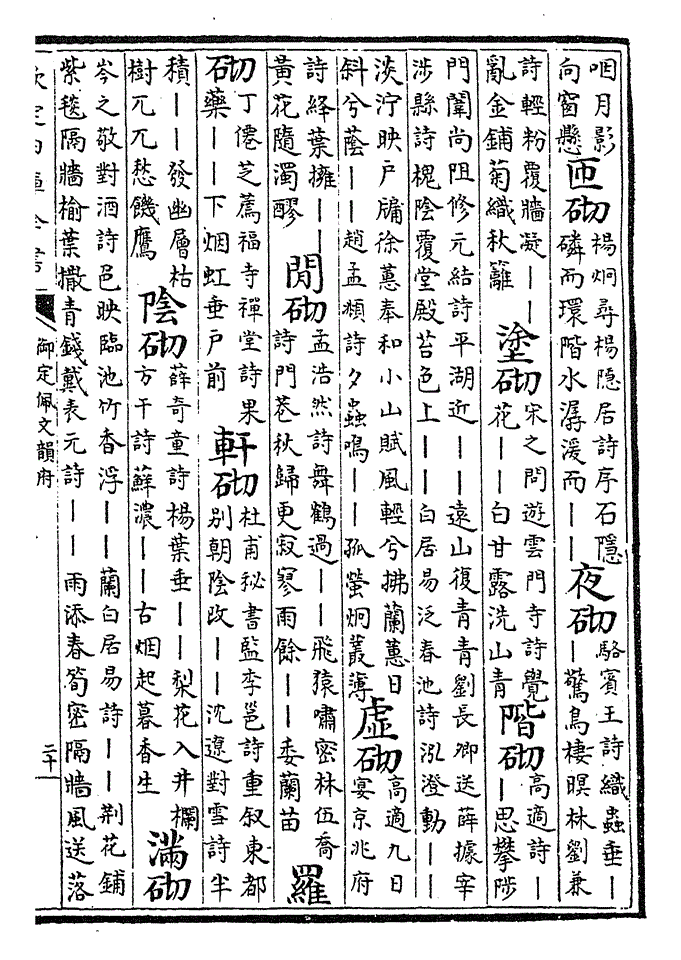 咽月影
向窗懸
匝砌
楊炯尋楊隱居詩序石隱
磷而環階水潺湲而丨丨
夜砌
駱賓王詩織蟲垂丨
丨驚鳥棲暝林劉兼
詩輕粉覆牆凝丨丨
亂金鋪菊織秋籬
塗砌
宋之問遊雲門寺詩覺
花丨丨白甘露洗山青
階砌
高適詩丨
丨思攀陟
門闈尚阻修元結詩平湖近丨丨遠山復青青劉長卿送薛據宰
涉縣詩槐陰覆堂殿苔色上丨丨白居易泛春池詩泓澄動丨丨
淡泞映戶牖徐蕙奉和小山賦風輕兮拂蘭蕙日
斜兮蔭丨丨趙孟頫詩夕蟲鳴丨丨孤螢炯叢薄
虛砌
高適九日
宴京兆府
詩絳葉擁丨丨
黃花隨濁醪
閒砌
孟浩然詩舞鶴過丨丨飛猿嘯密林伍喬
詩門巷秋歸更寂寥雨餘丨丨委蘭苗
羅
砌
丁僊芝薦福寺禪堂詩果
藥丨丨下烟虹垂戶前
軒砌
杜甫秘書監李邕詩重叙東都
別朝陰改丨丨沈遼對雪詩半
積丨丨發幽層枯
樹兀兀愁饑鷹
陰砌
薛奇童詩楊葉垂丨丨梨花入井欄
方干詩蘚濃丨丨古烟起暮香生
滿砌
岑之敬對酒詩色映臨池竹香浮丨丨蘭白居易詩丨丨荆花鋪
紫毯隔牆榆葉撒青錢戴表元詩丨丨雨添春筍密隔牆風送落
欽定四庫全書
御定佩文韻府
二十